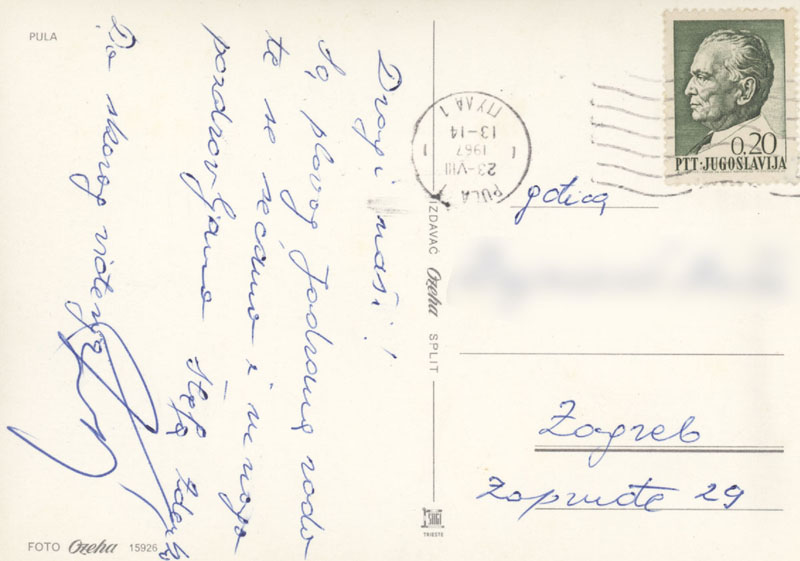 PULA
Dragi naši!
Sa plavog Jadrana rado
te se sećamo i mnogo
pozdravljamo
Do skorog viđenja
FOTO Ozeha 15926
IZDAVAČ Ozeha SPLIT
TRIESTE
PULA 1
23-VIII
1967
13-14
ПУЛА 1
0,20
PTT·JUGOSLAVIJA
gđica
Zagreb
Zapruđe 29